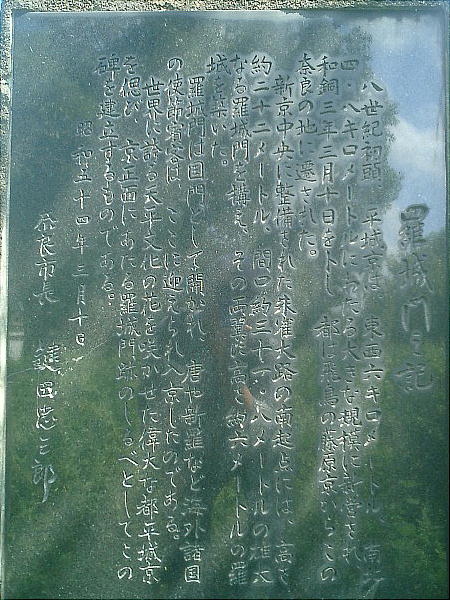 羅城門之記
八世紀初頭、平城京は、東西六キロメートル、南北
四・八キロメートルにわたる大きな規模に新営され
和銅三年三月十日をトし、都は飛鳥の藤原京からこの
奈良の地に遷された。
新京中央に整備された朱雀大路の南起点には、高さ
約二十二メートル、間口約三十一・八メートルの雄大
なる羅城門を構え、その両翼に高さ約六メートルの羅
城を築いた。
羅城門は国門として開かれ、唐や新羅など海外諸国
の使節賓客は、ここに迎えられ入京したのである。
世界に誇る天平文化の花を咲かせた偉大な都平城京
を偲び、京正面にあたる羅城門跡のしるべとしてこの
碑を建立するものである。
昭和五十四年三月十日
奈良市長 鍵田忠三郎